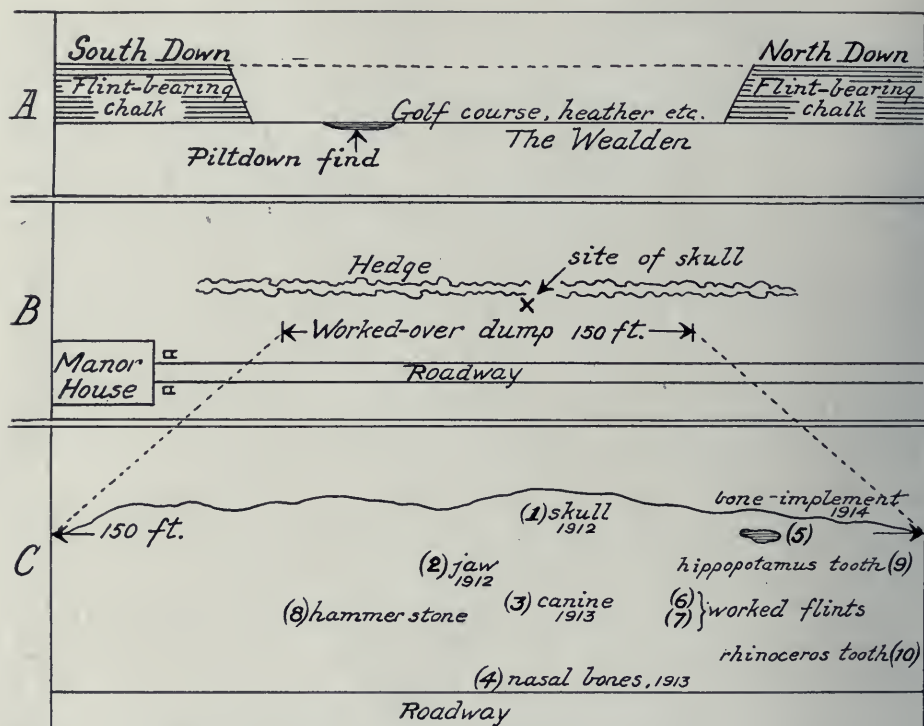 A
South Down
Flint-bearing
chalk
North Down
Flint-bearing
chalk
Golf course, heather etc.
The Wealden
Piltdown find
B
Hedge
site of skull
X
Worked-over dump 150 ft.
Manor
House
Roadway
C
150 ft.
(1) skull
1912
bone-implement
1914
(5)
(2) jaw
1912
hippopotamus tooth (9)
(3) canine
1913
(6)
(7) } worked flints
(8) hammer stone
rhinoceros tooth (10)
(4) nasal bones, 1913
Roadway